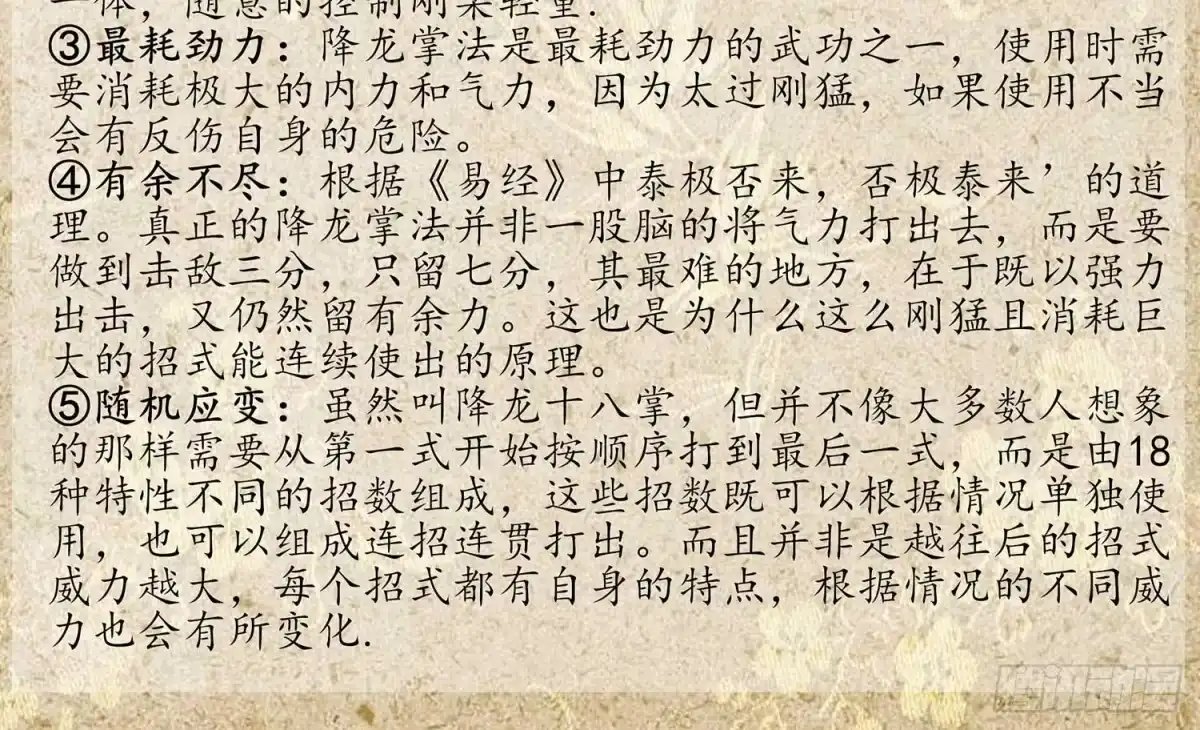 一体，随意的控制刚柔轻重.
③最耗劲力：降龙掌法是最耗劲力的武功之一，使用时需
要消耗极大的内力和气力，因为太过刚猛，如果使用不当
会有反伤自身的危险。
④有余不尽：根据《易经》中泰极否来，否极泰来’的道
理。真正的降龙掌法并非一股脑的将气力打出去，而是要
做到击敌三分，只留七分，其最难的地方，在于既以强力
出击，又仍然留有余力。这也是为什么这么刚猛且消耗巨
大的招式能连续使出的原理。
⑤随机应变：虽然叫降龙十八掌，但并不像大多数人想象
的那样需要从第一式开始按顺序打到最后一式，而是由18
种特性不同的招数组成，这些招数既可以根据情况单独使
用，也可以组成连招连贯打出。而且并非是越往后的招式
威力越大，每个招式都有自身的特点，根据情况的不同威
力也会有所变化.
腾讯动漫